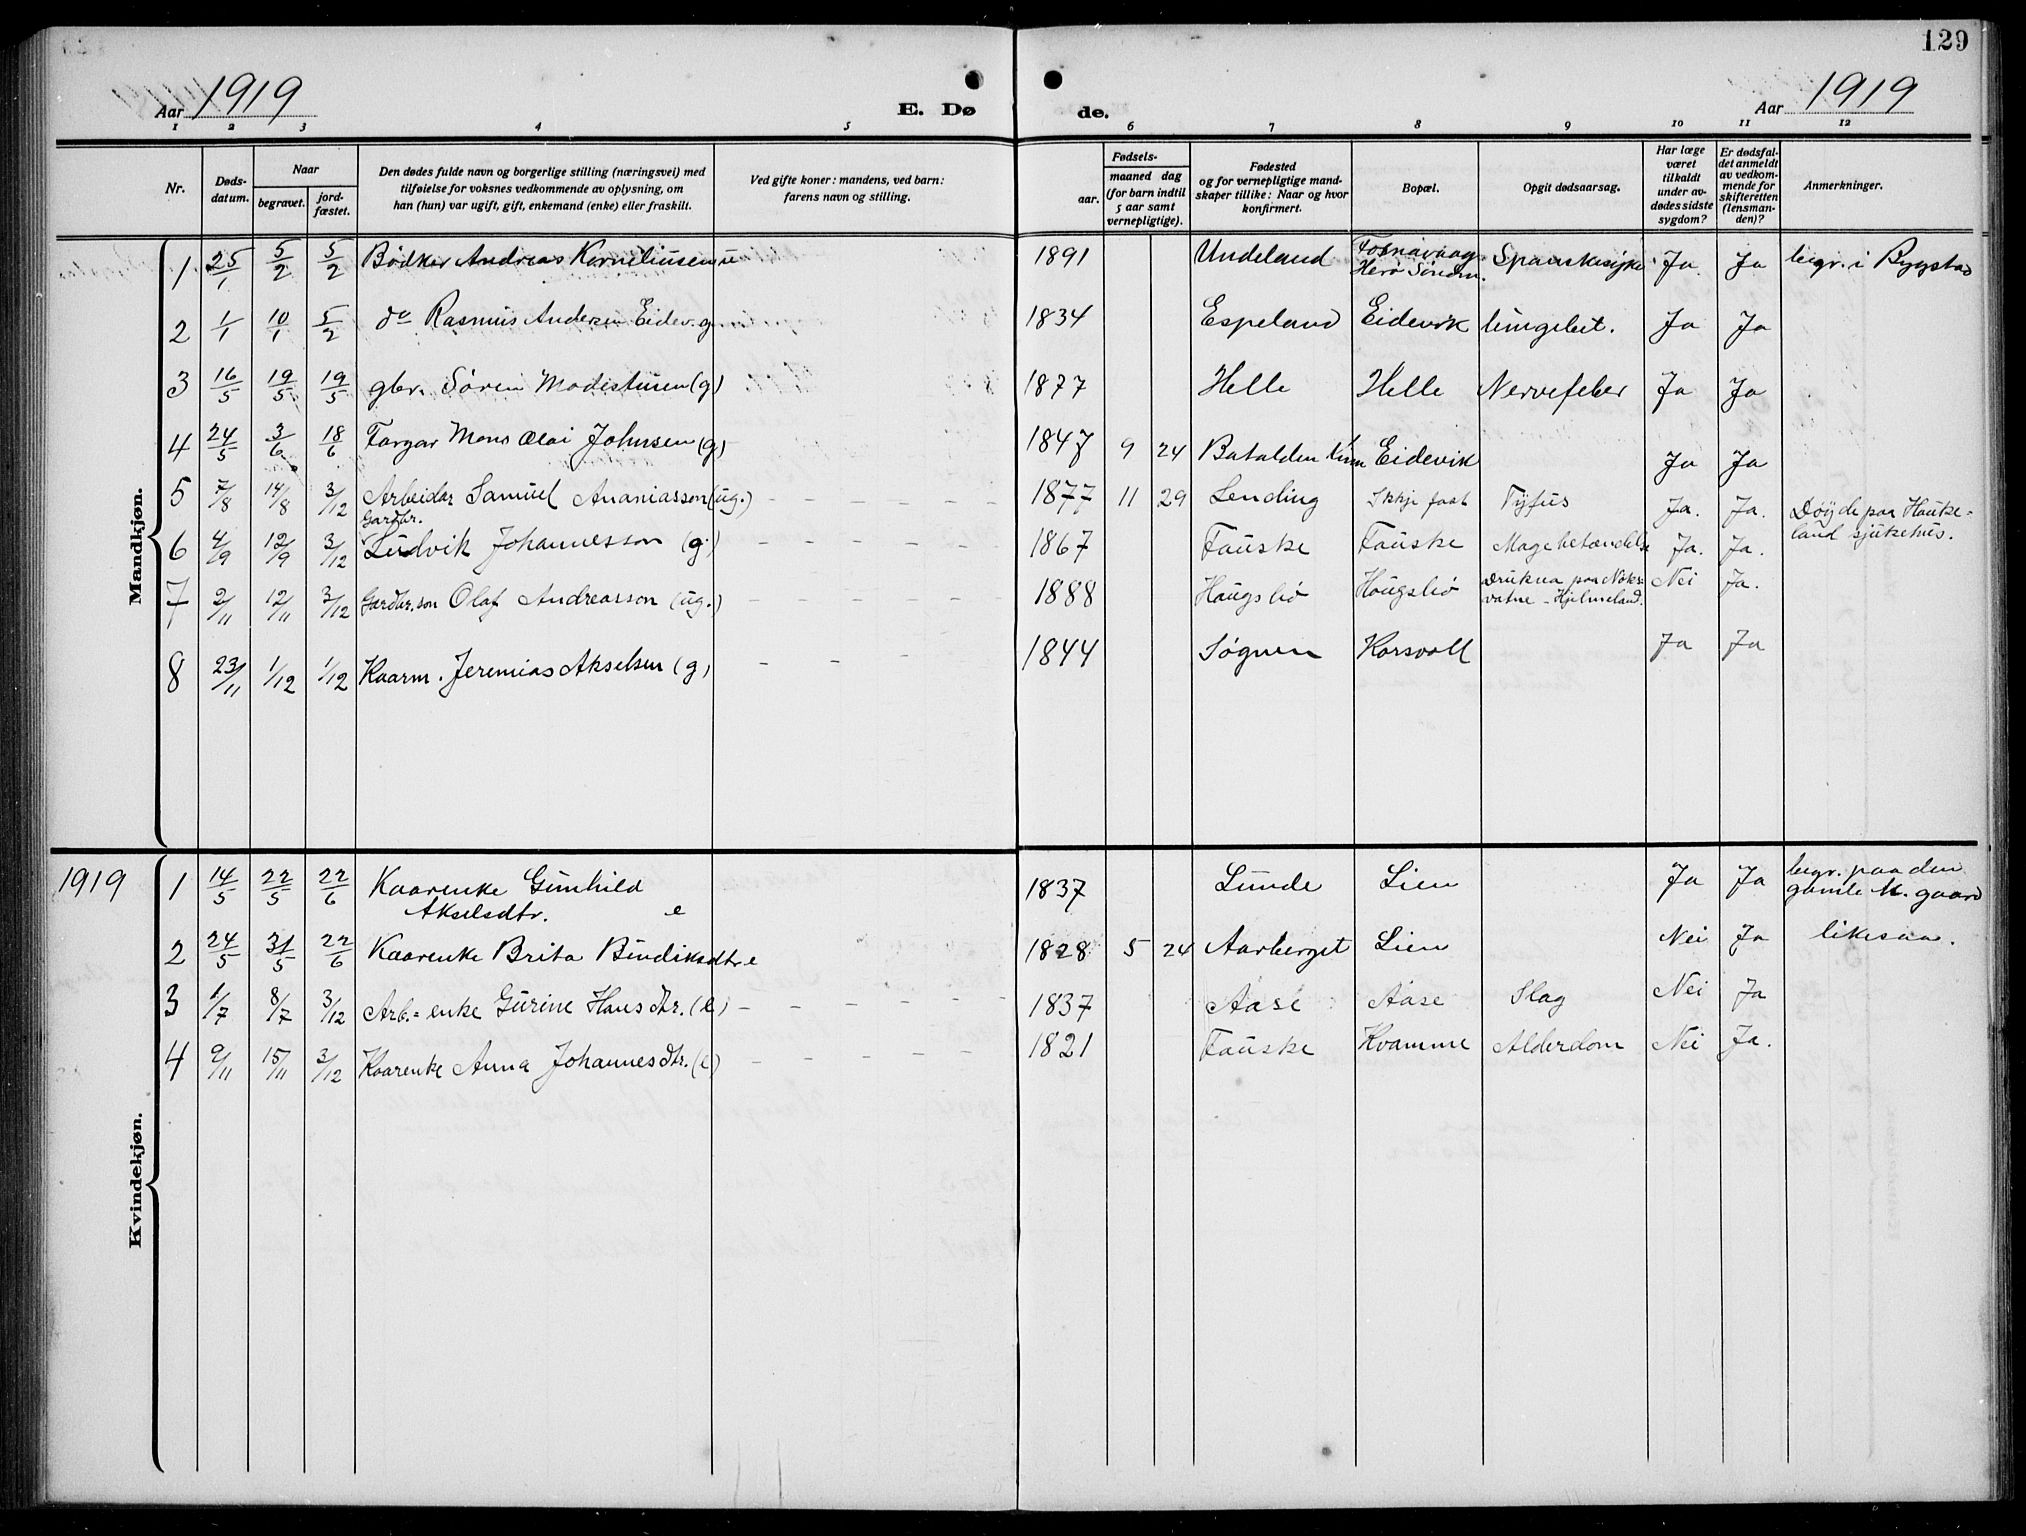 129
Aar 1919 E. Dø de. Aar 1919
1 2 3 4 5 6 7 8 9 10 11 12
Nr. Døds-datum. Naar begravet. jord-fæstet. Den dødes fulde navn og borgerlige stilling (næringsvei) med tilføielse for voksnes vedkommende av oplysning, om han (hun) var ugift, gift, enkemand (enke) eller fraskilt. Ved gifte koner: mandens, ved barn: farens navn og stilling. Fødsels- aar. maaned dag (for barn indtil 5 aar samt vernepligtige). Fødested og for vernepligtige mand-skaper tillike: Naar og hvor konfirmert. Bopæl. Opgit dødsaarsag. Har læge været tilkaldt under av-dødes sidste sygdom? Er dødsfal-det anmeldt av vedkom-mende for skifteretten (lensman-den)? Anmerkninger.
Mandkjøn.
1 25/1 5/2 5/2 Bødker Andreas Korneliussen u 1891 Undeland Fosnavaag Herø Søndm. Spanskesyke Ja. Ja begr. i Bygstad
2 1/1 10/1 5/2 do Rasmus Andersen Eidev. g 1834 Espeland Eidevik lungebet. Ja Ja
3 16/5 19/5 19/5 gbr. Søren Modestusen (g) 1877 Helle Helle Nervefeber Ja Ja
4 24/5 3/6 18/6 Fargar Mons Olai Johnsen (g) 1847 9 24 Batalden Kinn Eidevik Ja Ja
5 7/8 14/8 3/12 Arbeidar Samuel Ananiasson (ug.) - - - - - 1877 11 29 Lending Ikkje fast Tyfus Ja. Ja. Døyde paa Haukeland sjukehus.
6 4/9 12/9 3/12 Gardbr. Ludvik Johannesson (g.) - - - - - 1867 Fauske Fauske Magebetændelse Ja. Ja.
7 2/11 12/11 3/12 Gardbr.son Olaf Andreasson (ug.) - - - - - 1888 Haugsbø Haugsbø Drukna paa Nøks-vatne - Hjelmeland. Nei Ja.
8 23/11 1/12 1/12 Kaarm. Jeremias Akselsen (g) - - - 1844 Søgnen Korsvoll Ja Ja
1919
Kvindekjøn.
1 14/5 22/5 22/6 Kaarenke Gunhild Akselsdtr. e 1837 Lunde Lien Ja Ja begr. paa den gamle k. gaard
2 24/5 31/5 22/6 Kaarenke Brita Bendiksdtr e 1828 5 24 Aarberget Lien Nei Ja likesaa.
3 1/7 8/7 3/12 Arb.-enke Gurine Hansdtr. (e) - - - - - 1837 Aase Aase Slag Nei Ja
4 9/11 15/11 3/12 Kaarenke Anna Johannesdtr. (e) - - - - - 1821 Fauske Kvamme Alderdom Nei Ja.